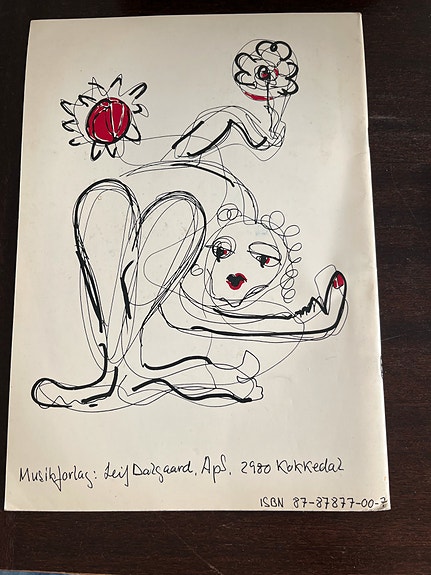 Musikforlag: Leif Dalgaard, ApS, 2980 Kokkedal
ISBN 87-87877-00-7